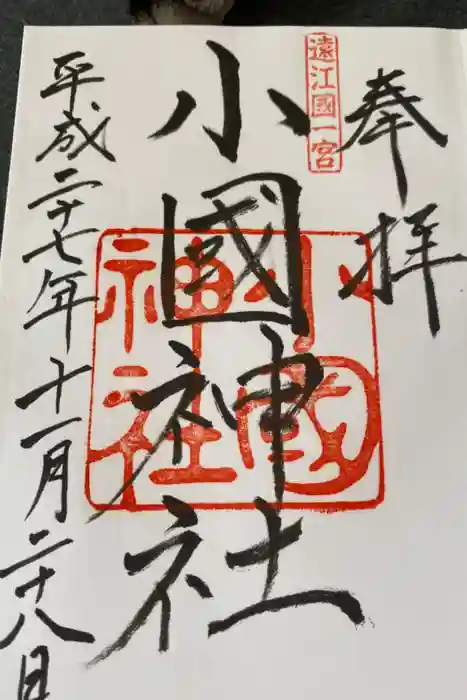 奉拝
遠江國一宮
小國神社
小國神社
平成二十七年十一月二十八日